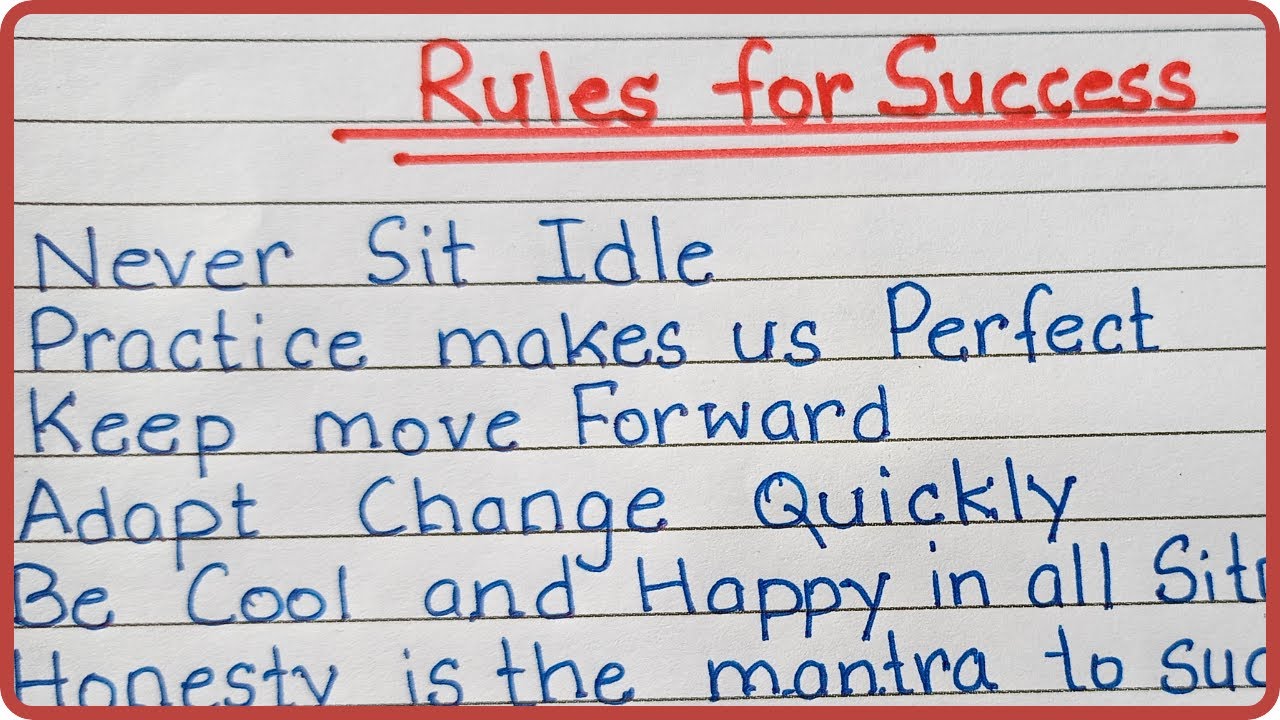 Rules for Success
Never Sit Idle
Practice makes us Perfect
Keep move Forward
Adapt Change Quickly
Be Cool and Happy in all
Honesty is the mantra to